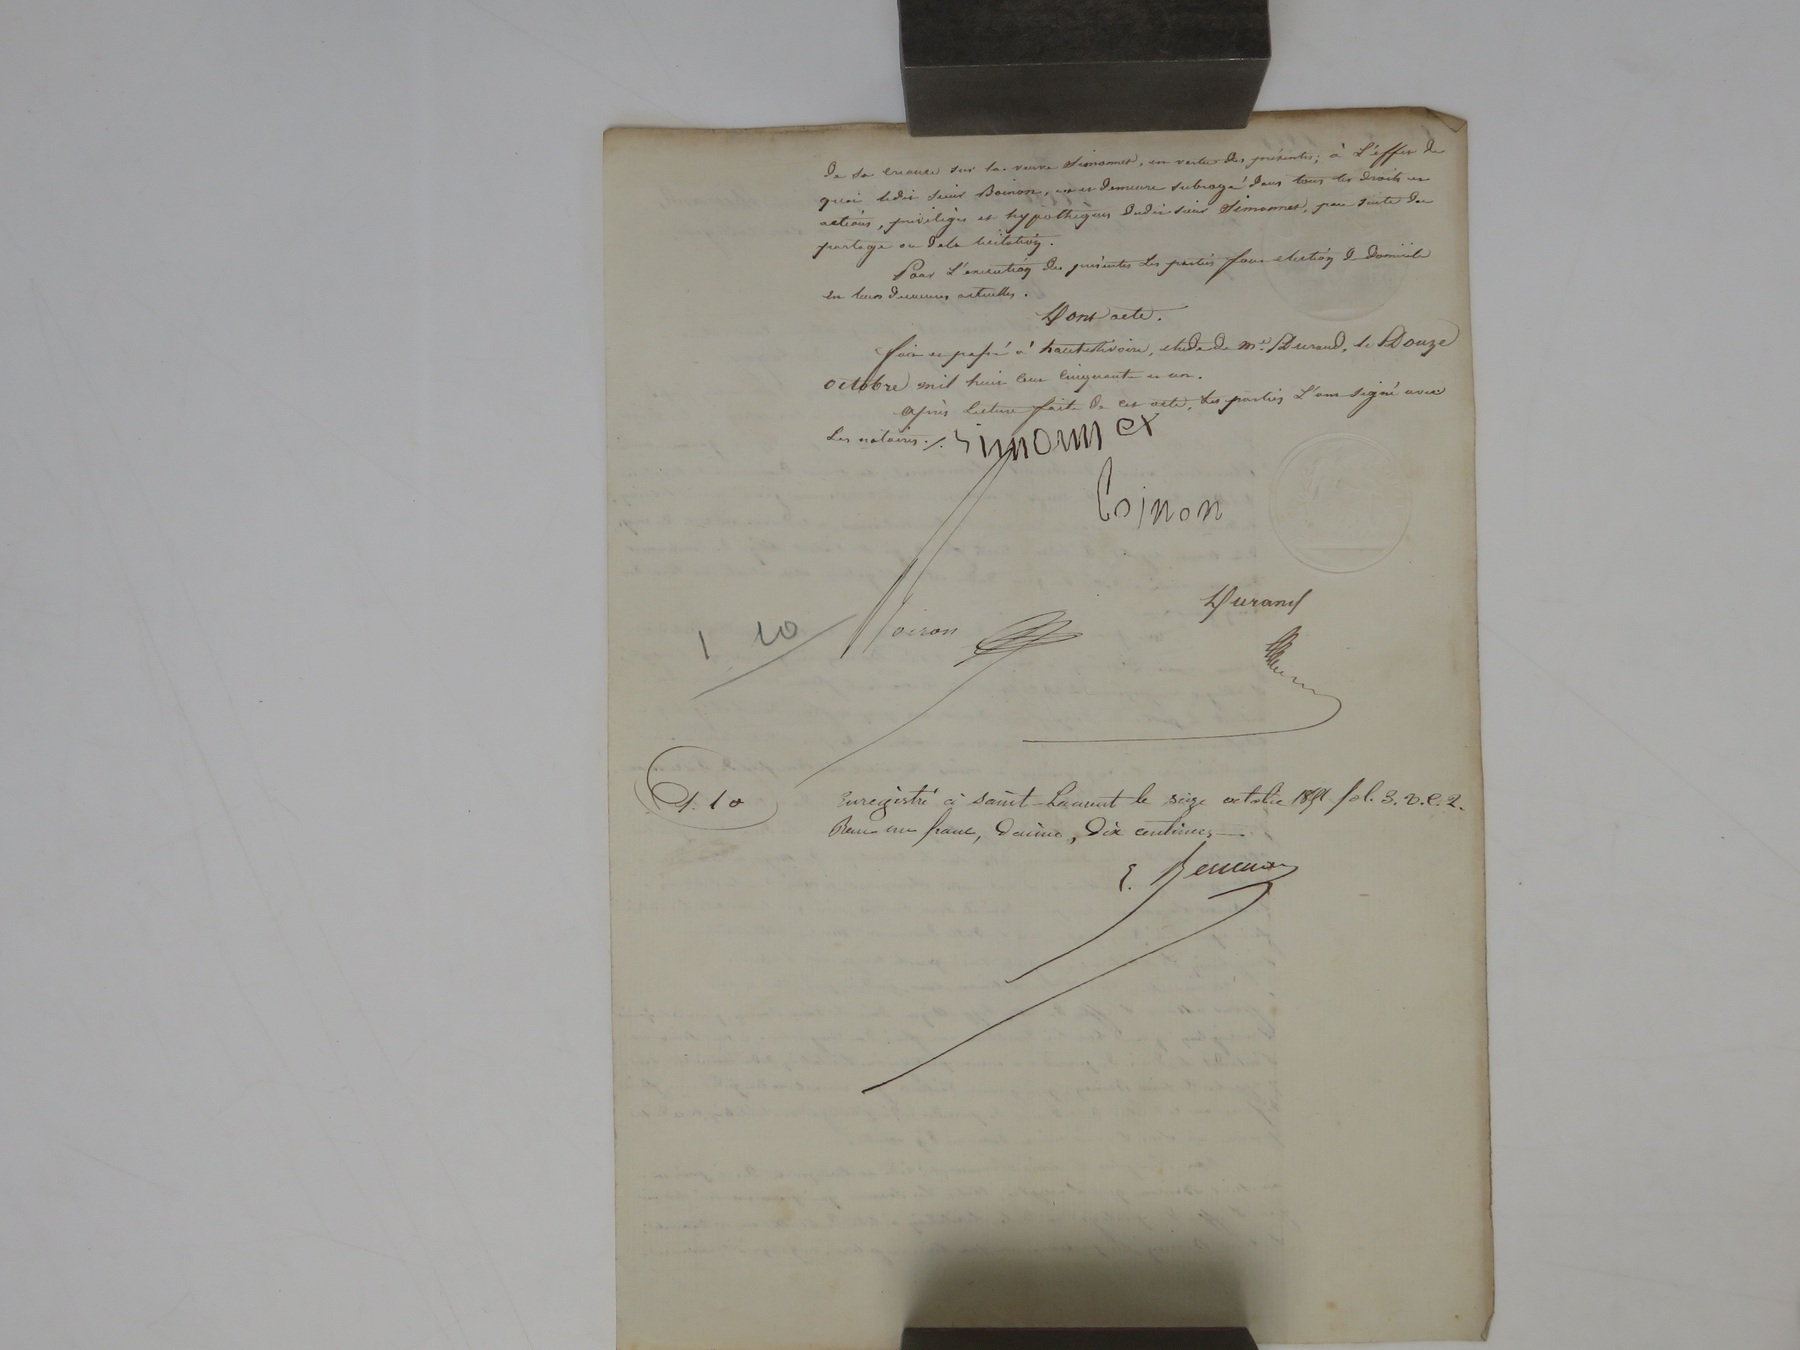 de sa créance sur la veuve Simonnet, en vertu des présentes; à l'effet de
quoi ledit sieur Boinon, est et demeure subrogé dans tous les droits et
actions, privilèges et hypothèques dudit sieur Simonnet, par suite du
partage ou de la licitation.
Pour l'exécution des présentes les parties font élection de domicile
en leurs demeures actuelles.
Dont acte.
fait et passé à hauterivoire, étude de Me. Durand, le Douze
octobre mil huit cent cinquante et un.
après lecture faite de cet acte, les parties l'ont signé avec
les notaires./.
Simonnet
Boinon
Durand
1 10
1. 10
Enregistré à Saint-Laurent le seize octobre 1851 fol. 3. v. c. 2.
Reçu un franc, décime, dix centimes
E.